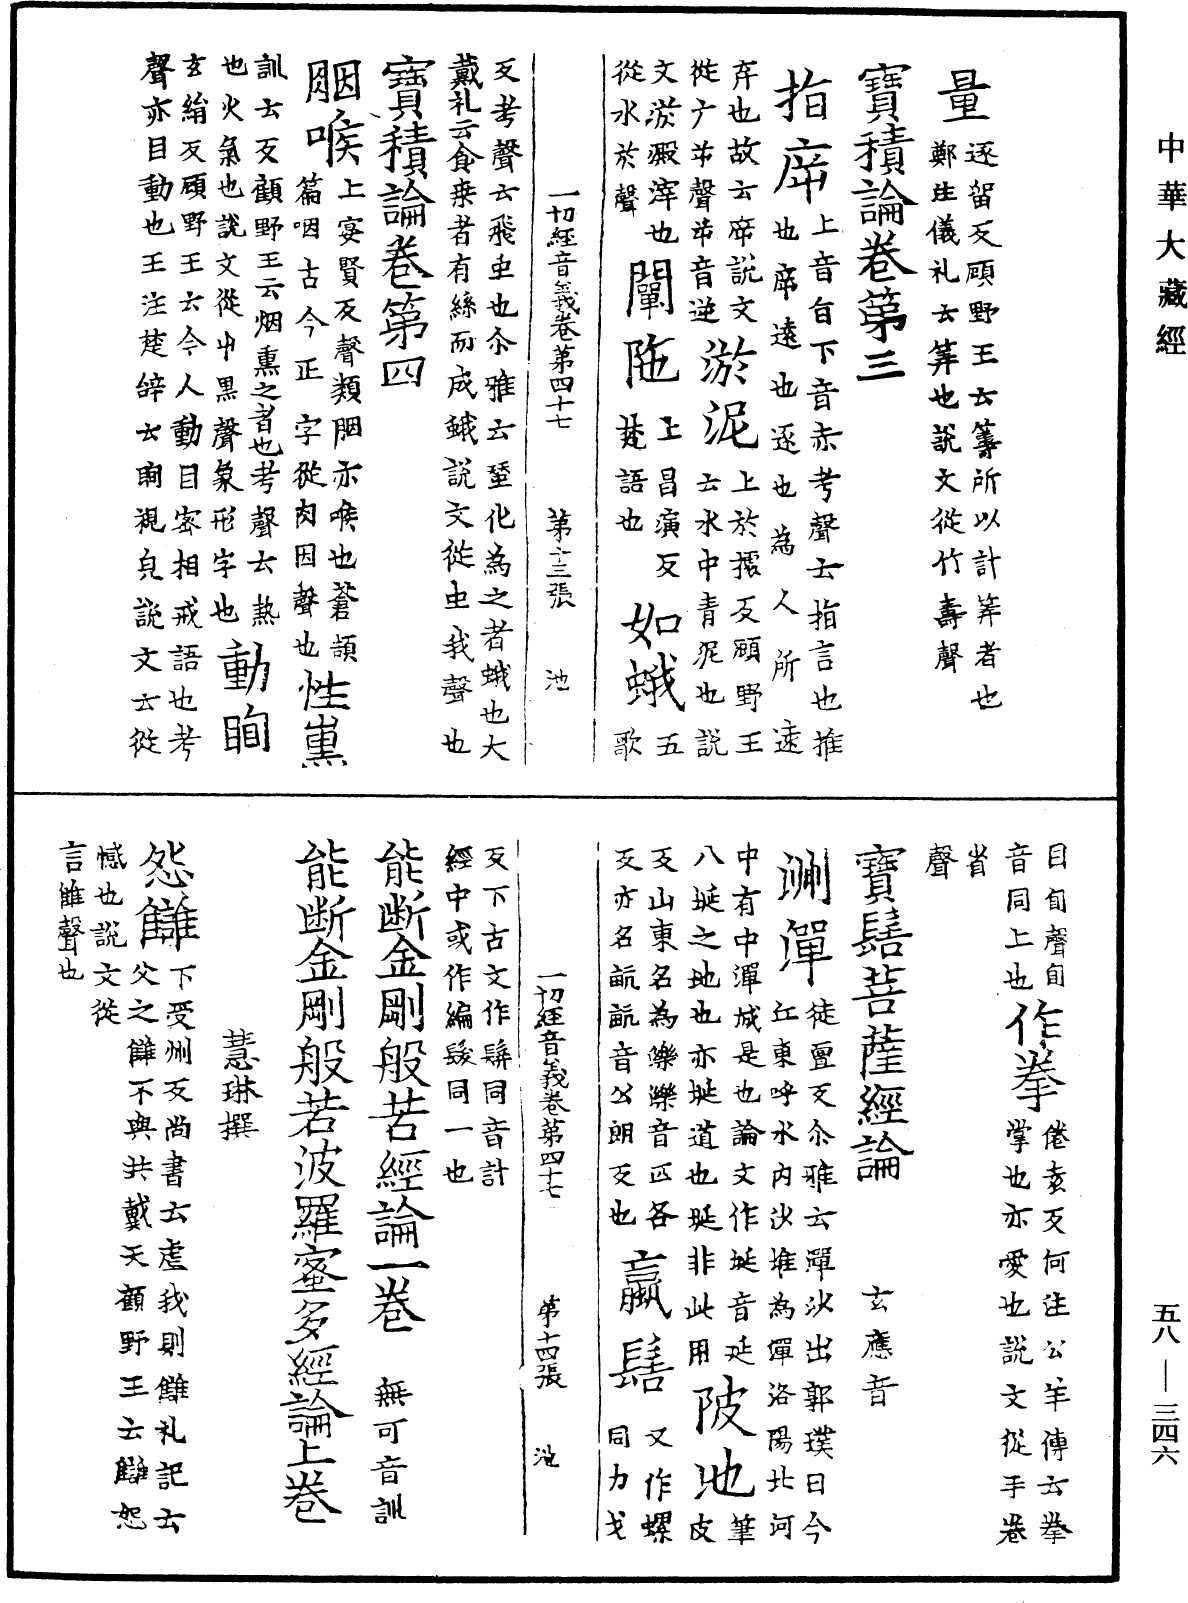 中華大藏經
量 逐留反顧野王云籌所以計筭者也
鄭注儀礼云筭也說文從竹壽聲
寶積論卷第三
指㡿 上音旨下音赤考聲云指言也推
也㡿遠也逐也為人所遠
弃也故云㡿說文
從广屰聲屰音逆 淤泥 上於據反顧野王
云水中青泥也說
文淤澱滓也
從水於聲 闡陁 上昌演反
梵語也 如蛾 五
歌
一切經音義卷第四十七 第十三張 池
反考聲云飛虫也尒雅云蛬化為之者蛾也大
戴礼云食桒者有絲而成蛾說文從虫我聲也
寶積論卷第四
胭喉 上宴賢反聲類胭亦喉也蒼頡
篇咽古今正字從肉因聲也 性熏
訓云反顧野王云烟熏之者也考聲云热
也火氣也說文從屮黑聲象形字也 動眴
玄絹反顧野王云今人動目宻相戒語也考
聲亦目動也王注楚辝云眴視皃說文云從
目旬聲旬
音同上也 作拳 倦袁反何注公羊傳云拳
掌也亦愛也說文從手𢍏
省
聲
寶髻菩薩經論 玄應音
渆潬 徒亶反尒雅云潬沙出郭璞曰今
江東呼水内沙堆為潬洛陽北河
中有中潬城是也論文作埏音延筆
八埏之地也亦埏道也埏非此用 陂池 皮
反山東名為濼濼音匹各
反亦名䢚䢚音公朗反也 蠃髻 又作螺
同力戈
一切經音義卷第四十七 第十四張 池
反下古文作髻同音計
經中或作編髮同一也
能断金剛般若經論一卷 無可音訓
能断金剛般若波羅蜜多經論上卷
慧琳撰
怨讎 下受州反尚書云虐我則讎礼記云
父之讎不與共戴天顧野王云讎怨
憾也說文從
言雔聲也
五八—三四六